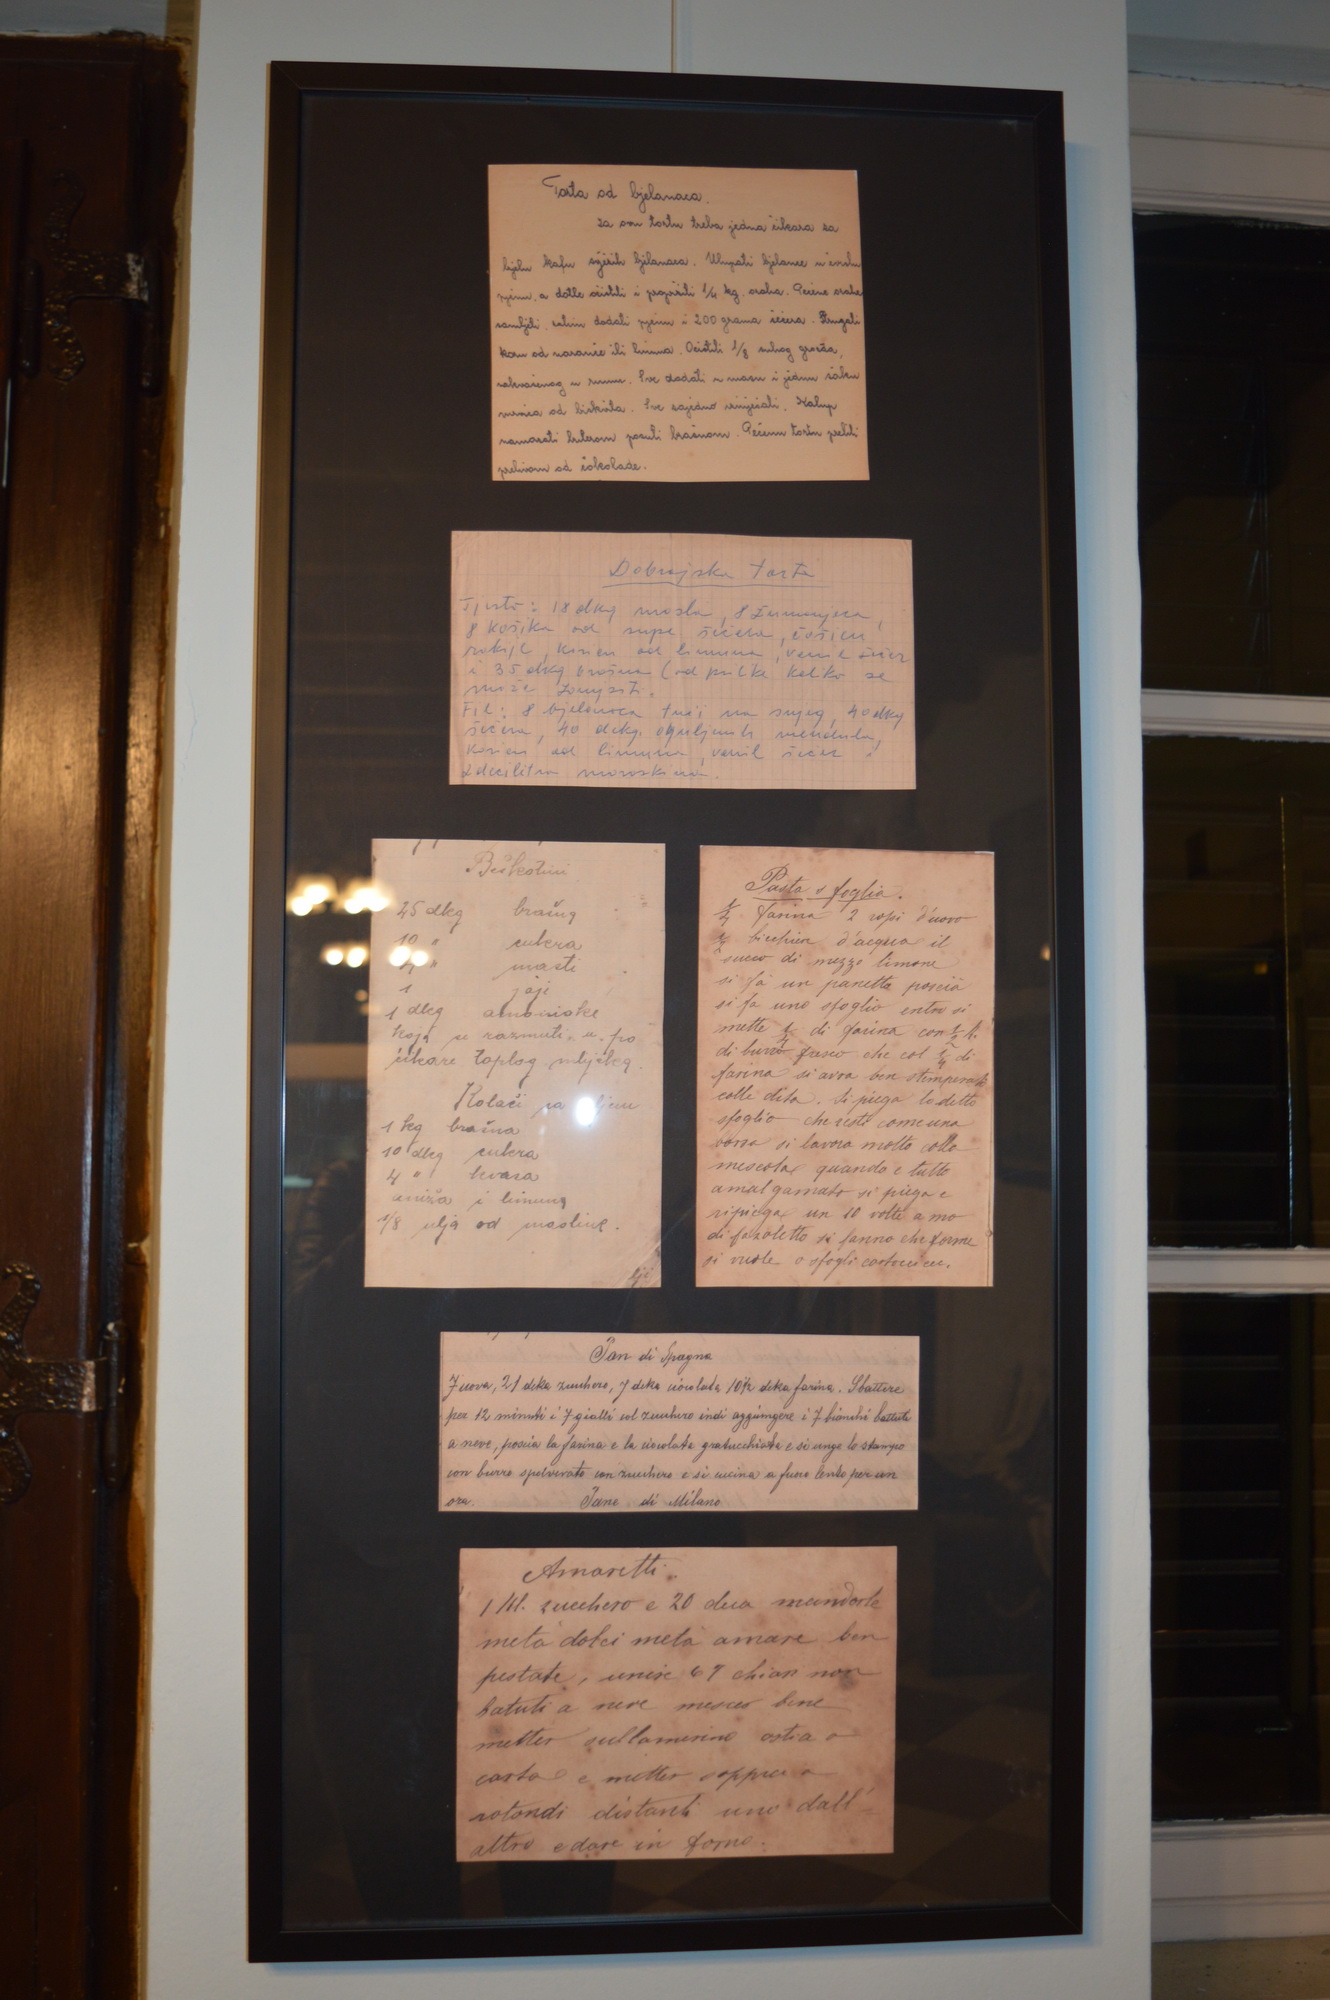 Torta od bjelanaca.
za ovu tortu treba jedna čikara za
bijelu kafu svježih bjelanaca. Ulupati bjelance u čvrstu
pjenu, a dotle očistiti i popržiti 1/4 kg. oraha. Pečene orahe
samljeti, zatim dodati pjenu i 200 grama šećera. Strugati
koru od naranče ili limuna. Očistiti 1/8 suhog grožđa,
nakvašenog u rumu. Sve dodati u masu i jednu šaku
mrvica od biskvita. Sve zajedno izmješati. Kalup
namazati buterom posuti brašnom. Pečenu tortu preliti
prelivom od čokolade.
Dobrojska torta
Tjesto: 18 dkg masla, 8 žumanjca,
8 kašika od supe šećera, čašicu
rakije, koricu od limuna, vanil šećer
i 35 dkg brašna (od prilike koliko se
može zamjesiti.
Fil: 8 bjelanca tući na snjeg, 40 dkg
šećera, 40 dckg. oguljenih mendula,
koricu od limuna, vanil šećer i
2 decilitra maraskina.
Biškotini
25 dkg brašna
10 " cukera
4 " masti
1 jaje
1 dkg amonjake
koja se razmuti u po
čikare toplog mlijeka.
Kolači sa uljem
1 kg brašna
10 dkg cukera
4 " kvasa
aniža i limuna
1/8 ulja od masline.
Pasta sfoglia.
1/4 farina 2 rossi d'uovo
1/2 bicchier d'acqua il
succo di mezzo limone
si fa un panetta poscia
si fa uno sfoglio entro si
mette 1/4 di farina con 1/2 k.
di burro fresco che col 1/4 di
farina si avra ben stemperato
colle dita. Si piega lo detto
sfoglio che resti come una
borsa si lavora molto colla
mescola quando e tutto
amalgamato si piega e
ripiega un 10 volte a mo
di fazoletto si fanno che forme
si vuole o sfogli
Pan di Spagna
7 uova, 21 deka zucchero, 7 deka ciocolata 10½ deka farina. Sbattere
per 12 minuti i 7 gialli col zucchero indi aggiungere i 7 bianchi battuti
a neve, poscia la farina e la ciocolata gratucchiata e si unge lo stampo
con burro spolverato con zucchero e si cucina a fuoco lento per un
ora. Pane di Milano
Amaretti.
1 Kl. zucchero e 20 deca mandorle
metà dolci metà amare ben
pestate, unire 67 chiari non
batuti a neve mescer bene
metter sullamerino ostia o
carta e metter soppra a
rotondi distanti uno dall'
altro e dare in forno.